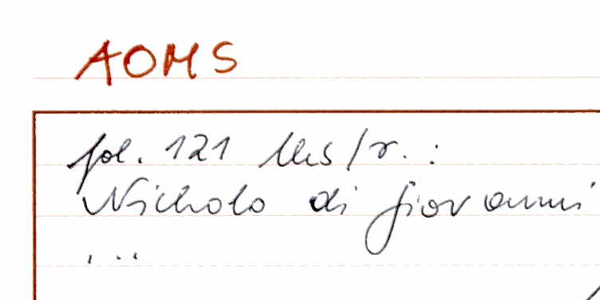 AOMS
fol. 121 lks/r. :
Nicholo di Giovanni
...